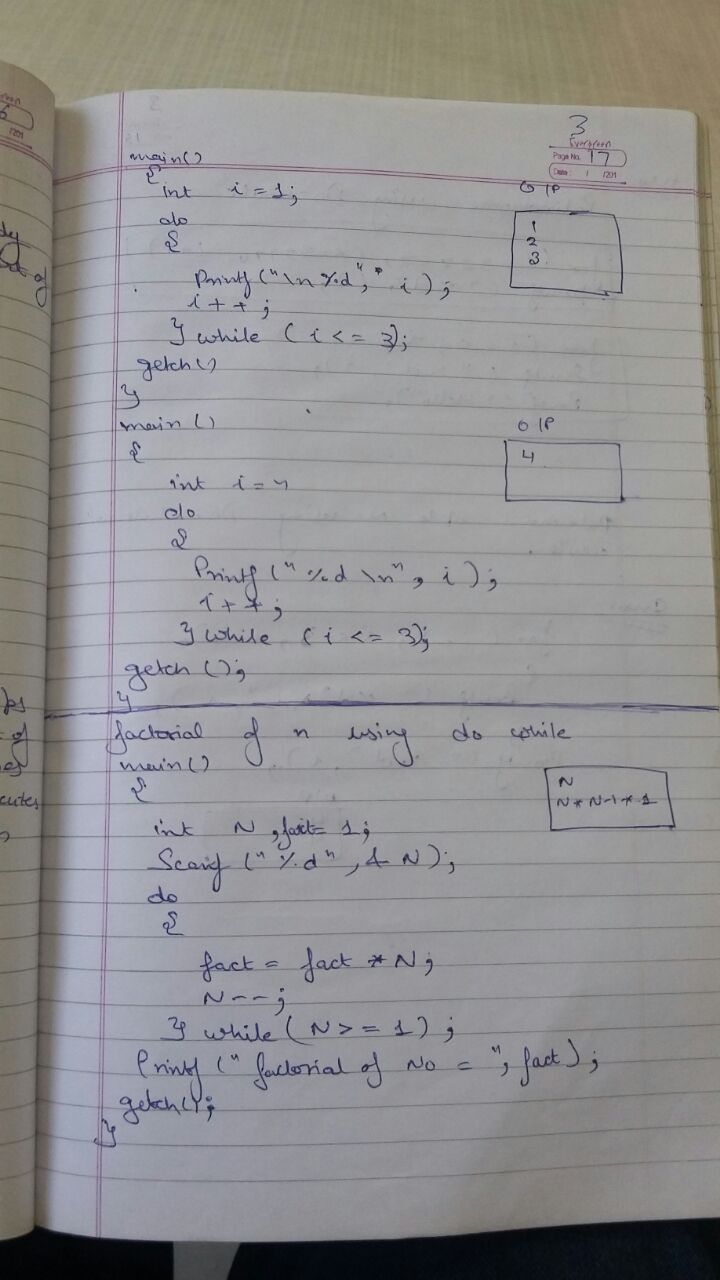 3
Evergreen
Page No. 17
Date: / /201
main()
{
int i = 1;
O/P
do
{
1
2
3
Printf("\n %d", i);
i++;
} while (i <= 3);
getch()
}
main()
O/P
{
4
int i = 4
do
{
Printf("%d \n", i);
i++;
} while (i <= 3);
getch();
}
factorial of n using do while
main()
{
N
N * N-1 * 1
int N, fact = 1;
Scanf("%d", & N);
do
{
fact = fact * N;
N--;
} while (N >= 1);
Printf("factorial of No = ", fact);
getch();
}
6
/201
of
of
cutes